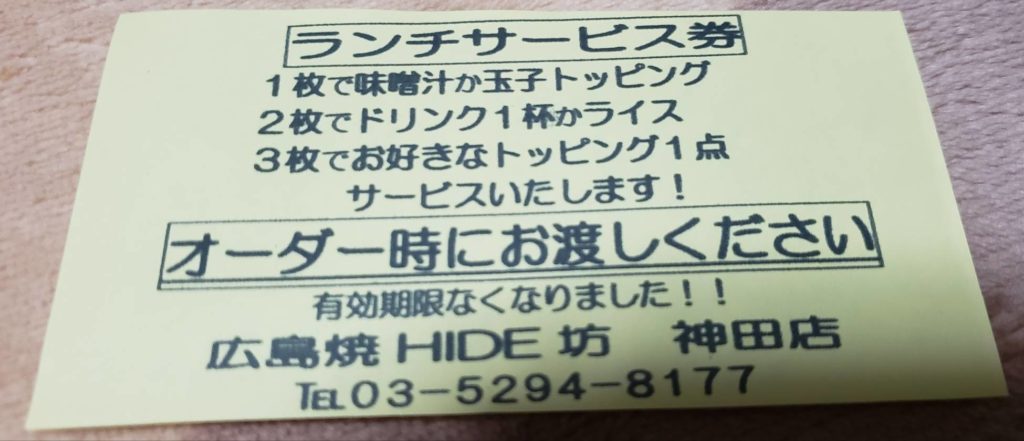 ランチサービス券
1枚で味噌汁か玉子トッピング
2枚でドリンク1杯かライス
3枚でお好きなトッピング1点
サービスいたします!
オーダー時にお渡しください
有効期限なくなりました!!
広島焼 HIDE 坊 神田店
℡03-5294-8177